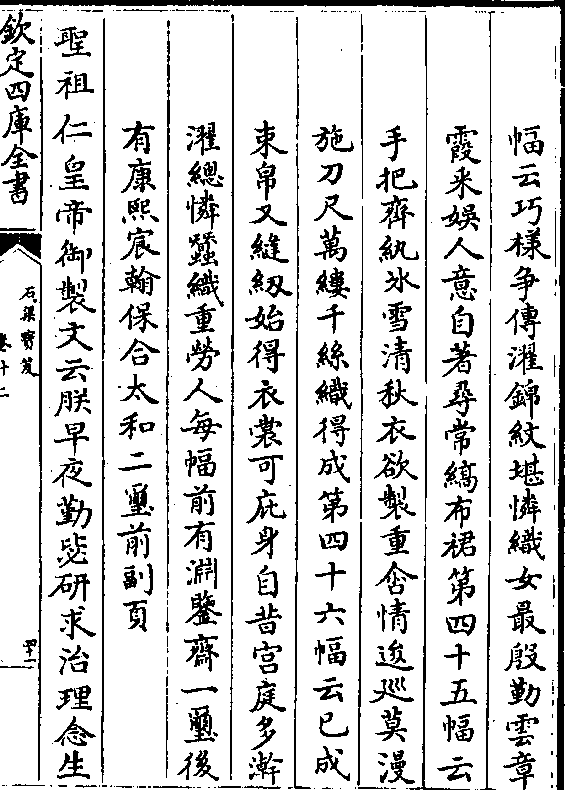 幅云巧様争傳濯錦紋堪憐織女最殷勤雲章
霞彩娛人意自著尋常縞布裙第四十五幅云
手把齊紈冰雪清秋衣欲製重含情逡巡莫漫
施刀尺萬縷千絲織得成第四十六幅云已成
束帛又縫紉始得衣裳可庇身自昔宫庭多澣
濯總憐蠶織重勞人每幅前有淵鑒齋一璽後
有康熙宸翰保合太和二璽前副頁
聖祖仁皇帝御製文云朕早夜勤毖研求治理念生
欽定四庫全書
石渠寳笈
卷十二